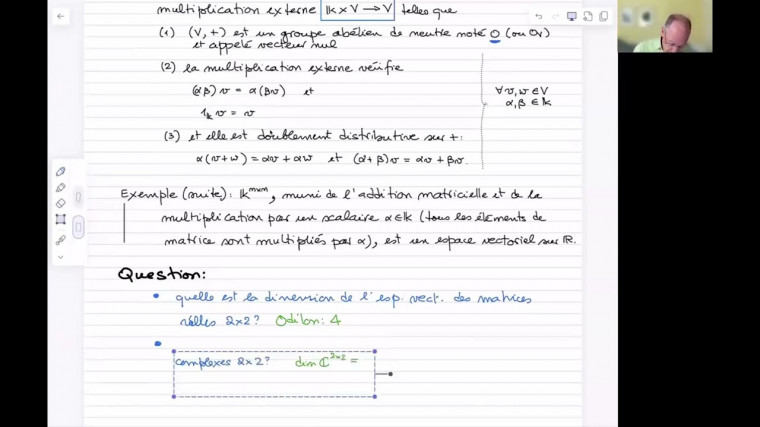 multiplication externe 𝕜 x V → V telles que
(1) (V, +) est un groupe abélien de neutre noté 0 (ou 0v)
et appelé vecteur nul
(2) la multiplication externe vérifie
(αβ)v = α(βv) et
1𝕜 v = v
∀ v, w ∈ V
α, β ∈ 𝕜
(3) et elle est doublement distributive sur + :
α(v+w) = αv + αw et (α+β)v = αv + βv.
Exemple (suite) : 𝕜ᵐˣⁿ, muni de l'addition matricielle et de la
multiplication par un scalaire α∈𝕜 (tous les éléments de
matrice sont multipliés par α), est un espace vectoriel sur ℝ.
Question:
• quelle est la dimension de l'esp. vect. des matrices
réelles 2x2? Odilon: 4
•
complexes 2x2? dim ℂ²ˣ² =